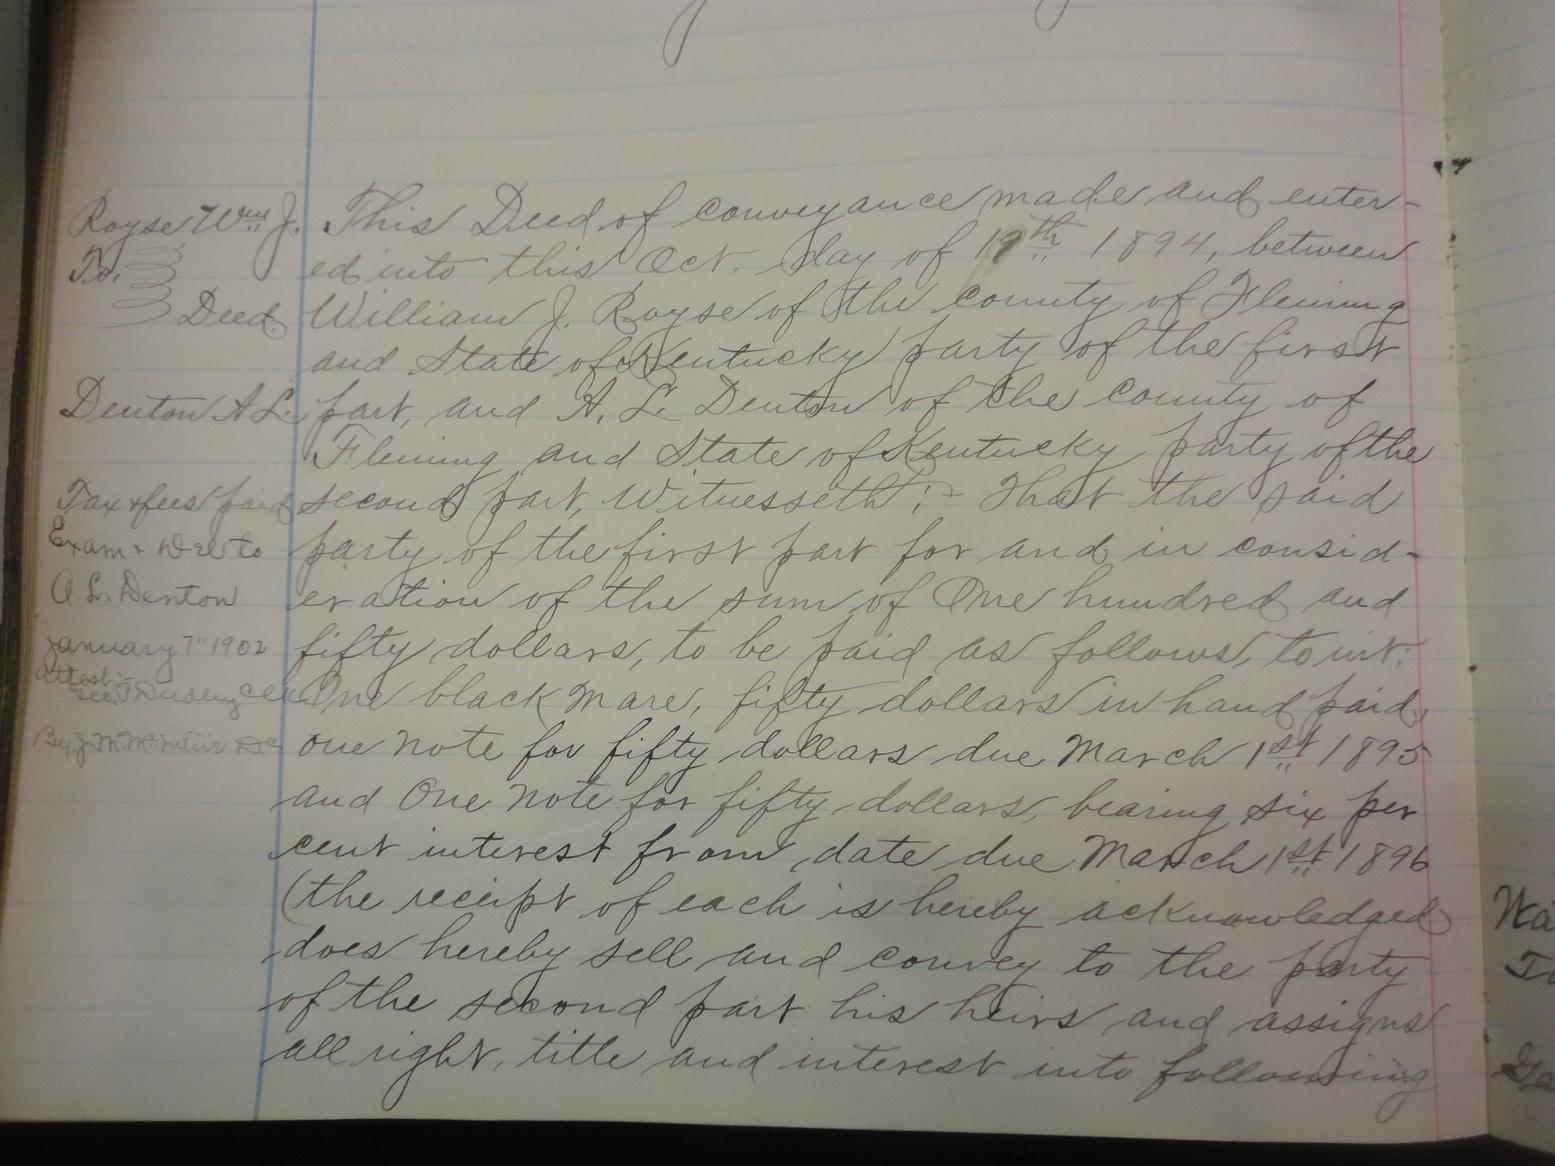 Royse Wm J.
To.
Deed
Denton A L.
Tax & fees paid
Exam & Del to
A. L. Denton
January 7" 1902
Attest:-
Geo. T. Dudley Clk
By J. M. D.C.
This Deed of conveyance made and enter-
ed into this Oct. day of 19th 1894, between
William J. Royse of the county of Fleming
and State of Kentucky party of the first
part, and A. L. Denton of the county of
Fleming and State of Kentucky party of the
second part, Witnesseth:- That the said
party of the first part for and in consid-
eration of the sum of One hundred and
fifty dollars, to be paid as follows, to wit:
One black mare, fifty dollars in hand paid,
one note for fifty dollars due March 1st 1895
and One note for fifty dollars, bearing six per
cent interest from date due March 1st 1896
(the receipt of each is hereby acknowledged
does hereby sell and convey to the party
of the second part his heirs and assigns
all right, title and interest into following
Wa
To
Ga